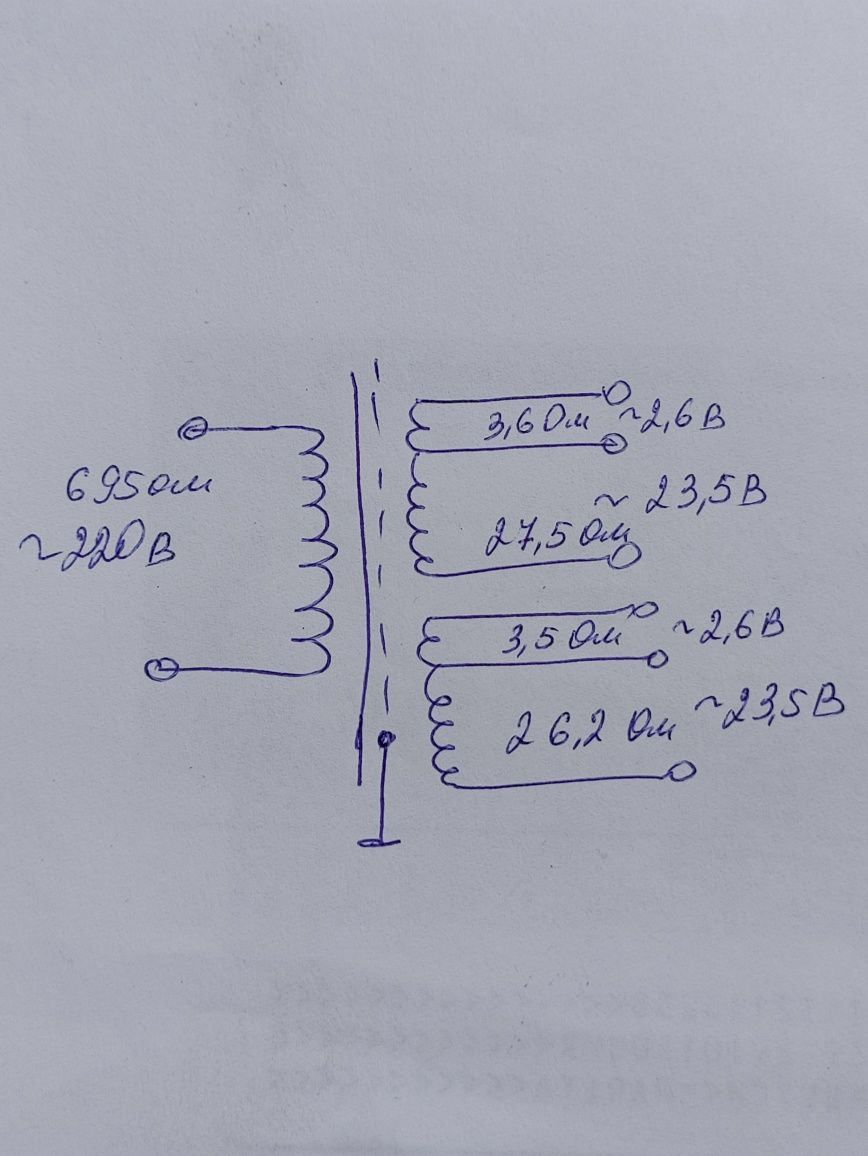 695 ом
~220 В
3,6 Ом ~2,6 В
~ 23,5 В
27,5 Ом
3,5 Ом ~2,6 В
26,2 Ом ~23,5 В